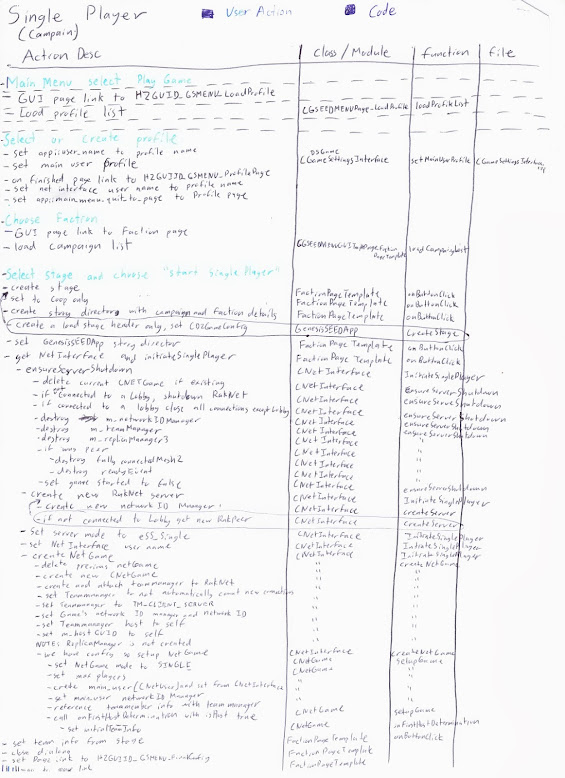 Single Player
(Campain)
User Action
Code
Action Desc
Class/Module
function
file
Main Menu select Play Game
- GUI page link to HZGUID_GSMENU_LoadProfile
- Load profile list
CGSEEDMENUPage-LoadProfile
loadProfileList
Select or create profile
- set app::user_name to profile name
- set main user profile
DSGame
CGameSettingsInterface
setMainUserProfile
- on finished page link to HZGUIJD_GSMENU_ProfilePage
- set net interface user name to profile name
- set app::main_menu_quit_to_page to Profile page
Choose Faction
- GUI page link to Faction page
- load campaign list
loadCampaignList
Select stage and choose "start single Player"
- create stage
FactionPageTemplate
onButtonClick
set to coop only
FactionPageTemplate
onButtonClick
- create story director with campaign and Faction details
FactionPageTemplate
onButtonClick
- create a load stage header only, set CDZGameConfig
GenesisSEEDApp
CreateStage
- set GenesisSEEDApp story director
FactionPageTemplate
onButtonClick
- get NetInterface and initiateSinglePlayer
FactionPageTemplate
onButtonClick
- ensureServerShutdown
CNetInterface
InitiateSinglePlayer
- delete current CNETGame if existing
CNetInterface
EnsureServerShutdown
- if connected to a Lobby, shutdown RakNet
CNetInterface
ensureServerShutdown
- if connected to a lobby close all connections except Lobby
CNetInterface
ensureServerShutdown
- destroy m_networkIDManager
CNetInterface
ensureServerShutdown
- destroy m_teamManager
CNetInterface
ensureServerShutdown
- destroy m_replicaManager3
CNetInterface
"
- if was Peer
CNetInterface
"
- destroy fullyconnectedMesh2
CNetInterface
"
- destroy readyEvent
CNetInterface
"
- set game started to false
CNetInterface
ensureServerShutdown
- create new RakNet server
CNetInterface
InitiateSinglePlayer
- create new networkID Manager
CNetInterface
createServer
- if not connected to Lobby get new RakPeer
CNetInterface
createServer
- Set server mode to eSS_Single
CNetInterface
InitiateSinglePlayer
- set NetInterface user name
CNetInterface
InitiateSinglePlayer
- create NetGame
CNetInterface
InitiateSinglePlayer
- delete previous netGame
"
createNetGame
- create new CNetGame
"
"
- create and attach teammanager to RakNet
"
"
- set Teammanager to not automatically count new connections
"
"
- set Teammanager to TM_CLIENT_SERVER
"
"
- set Game's network ID manager and network ID
"
"
- set Teammanager host to self
"
"
- set m_hostGUID to self
"
"
NOTE: ReplicaManager is not created
- we have config so setup NetGame
CNetInterface
createNetGame
- set NetGame mode to SINGLE
CNetGame
setupGame
- set max players
CNetGame
"
- create main_user (CNetUser) and set from CNetInterface
"
"
- set main user networkID Manager
"
"
- reference teammember info with team manager
CNetGame
setupGame
- call onFirstHostDetermination with isHost true
CNetGame
onFirstHostDetermination
- set initialTeamInfo
- set team info from stage
FactionPageTemplate
onButtonClick
- close dialog
FactionPageTemplate
- set Page link to HZGUIID_GSMENU_PreConfig
FactionPageTemplate